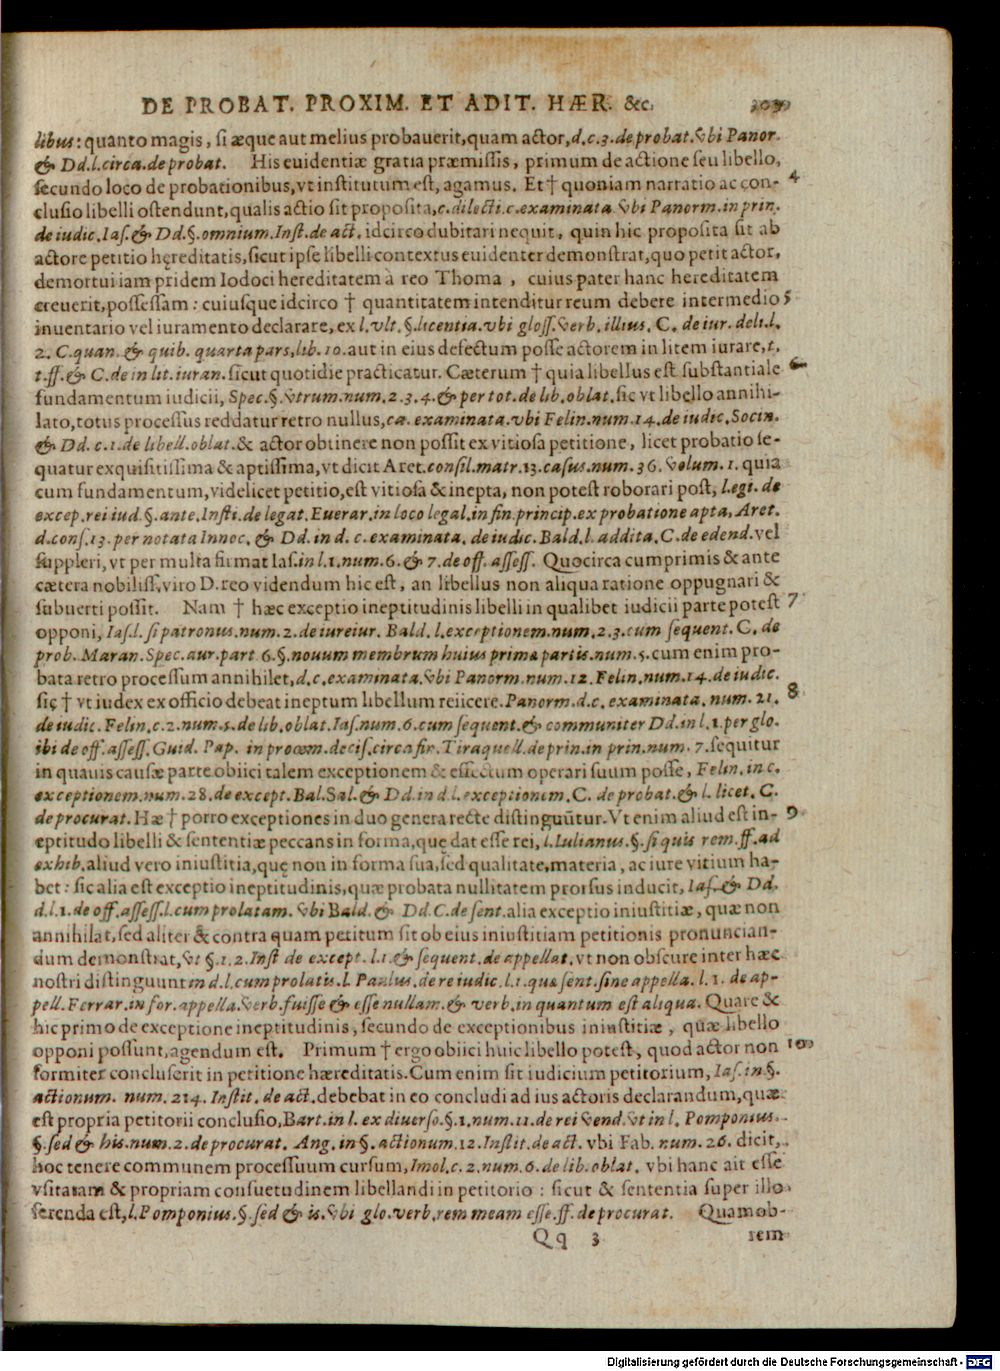 DE PROBAT. PROXIM. ET ADIT. HÆR. &c.
libus: quanto magis, si æque aut melius probauerit, quam actor, d.c.3. de probat. vbi Panor.
& Dd. l. circa. de probat. His euidentiæ gratia præmissis, primum de actione seu libello,
secundo loco de probationibus, vt institutum est, agamus. Et † quoniam narratio ac con- 4
clusio libelli ostendunt, qualis actio sit proposita, c. dilecti. c. examinata vbi Panorm. in prin.
de iudic. Ias. & Dd. §. omnium. Inst. de act. idcirco dubitari nequit, quin hic proposita sit ab
actore petitio hęreditatis, sicut ipse libelli contextus euidenter demonstrat, quo petit actor,
demortui iam pridem Iodoci hereditatem à reo Thoma, cuius pater hanc hereditatem
creuerit, possessam: cuiusque idcirco † quantitatem intenditur reum debere intermedio 5
inuentario vel iuramento declarare, ex l. vlt. §. licentia. vbi gloss. verb. illius. C. de iur. deli. l.
2. C. quan. & quib. quarta pars, lib. 10. aut in eius defectum posse actorem in litem iurare, t.
t. ff. & C. de in lit. iuran. sicut quotidie practicatur. Cæterum † quia libellus est substantiale 6
fundamentum iudicii, Spec. §. vtrum. num. 2. 3. 4. & per tot. de lib. oblat. sic vt libello annihi-
lato, totus processus reddatur retro nullus, ca. examinata. vbi Felin. num. 14. de iudic. Socin.
& Dd. c. 1. de libell. oblat. & actor obtinere non possit ex vitiosa petitione, licet probatio se-
quatur exquisitissima & aptissima, vt dicit Aret. consil. matr. 13. casus. num. 36. volum. 1. quia
cum fundamentum, videlicet petitio, est vitiosa & inepta, non potest roborari post, l. egi. de
excep. rei iud. §. ante. Insti. de legat. Euerar. in loco legal. in fin. princip. ex probatione apta. Aret.
d. cons. 13. per notata Innoc. & Dd. in d. c. examinata. de iudic. Bald. l. addita. C. de edend. vel
suppleri, vt per multa firmat Ias. in l. 1. num. 6. & 7. de off. assess. Quocirca cumprimis & ante
cætera nobiliss. viro D. reo videndum hic est, an libellus non aliqua ratione oppugnari &
subuerti possit. Nam † hæc exceptio ineptitudinis libelli in qualibet iudicii parte potest 7
opponi, Ias. l. si patronus. num. 2. de iureiur. Bald. l. exceptionem. num. 2. 3. cum sequent. C. de
prob. Maran. Spec. aur. part 6. §. nouum membrum huius prima partis. num. 5. cum enim pro-
bata retro processum annihilet, d. c. examinata. vbi Panorm. num. 12. Felin. num. 14. de iudic.
sic † vt iudex ex officio debeat ineptum libellum reiicere. Panorm. d. c. examinata. num. 21. 8
de iudic. Felin. c. 2. num. 5. de lib. oblat. Ias. num. 6. cum sequent. & communiter Dd. in l. 1. per glo.
ibi de off. assess. Guid. Pap. in proœm. decis. circa fir. Tiraquell. de prin. in prin. num. 7. sequitur
in quauis causæ parte obiici talem exceptionem & effectum operari suum posse, Felin. in c.
exceptionem. num. 28. de except. Bal. Sal. & Dd. in d. l. exceptionem. C. de probat. & l. licet. C.
de procurat. Hæ † porro exceptiones in duo genera recte distinguūtur. Vt enim aliud est in- 9
eptitudo libelli & sententiæ peccans in forma, quę dat esse rei, l. Iulianus. §. si quis rem. ff. ad
exhib. aliud vero iniustitia, quę non in forma sua, sed qualitate, materia, ac iure vitium ha-
bet: sic alia est exceptio ineptitudinis, quæ probata nullitatem prorsus inducit, Ias. & Dd.
d. l. 1. de off. assess. l. cum prolatam. vbi Bald. & Dd. C. de sent. alia exceptio iniustitiæ, quæ non
annihilat, sed aliter & contra quam petitum sit ob eius iniustitiam petitionis pronuncian-
dum demonstrat, vt §. 1. 2. Inst de except. l. 1. & sequent. de appellat. vt non obscure inter hæc
nostri distinguunt in d. l. cum prolatis. l. Paulus. de re iudic. l. 1. quæ sent. sine appella. l. 1. de ap-
pell. Ferrar. in for. appella. verb. fuisse & esse nullam. & verb. in quantum est aliqua. Quare &
hic primo de exceptione ineptitudinis, secundo de exceptionibus iniustitiæ, quæ libello
opponi possunt, agendum est. Primum † ergo obiici huic libello potest, quod actor non 10
formiter concluserit in petitione hæreditatis. Cum enim sit iudicium petitorium, Ias. in §.
actionum. num. 214. Instit. de act. debebat in eo concludi ad ius actoris declarandum, quæ
est propria petitorii conclusio, Bart. in l. ex diuerso. §. 1. num. 11. de rei vend. vt in l. Pomponius.
§. sed & his. num. 2. de procurat. Ang. in §. actionum. 12. Instit. de act. vbi Fab. num. 26. dicit,
hoc tenere communem processuum cursum, Imol. c. 2. num. 6. de lib. oblat. vbi hanc ait esse
vsitatam & propriam consuetudinem libellandi in petitorio: sicut & sententia super illo
ferenda est, l. Pomponius. §. sed & is. vbi glo. verb. rem meam esse. ff. de procurat. Quamob-
Qq 3 rem
Digitalisierung gefördert durch die Deutsche Forschungsgemeinschaft - DFG